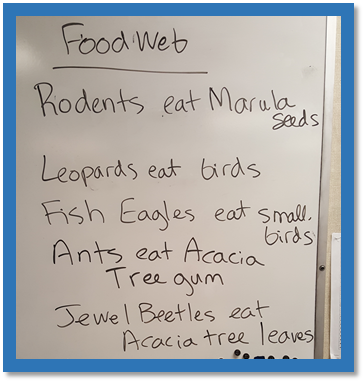 Food Web
Rodents eat Marula
seeds
Leopards eat birds
Fish Eagles eat small.
birds
Ants eat Acacia
Tree gum
Jewel Beetles eat
Acacia tree leaves